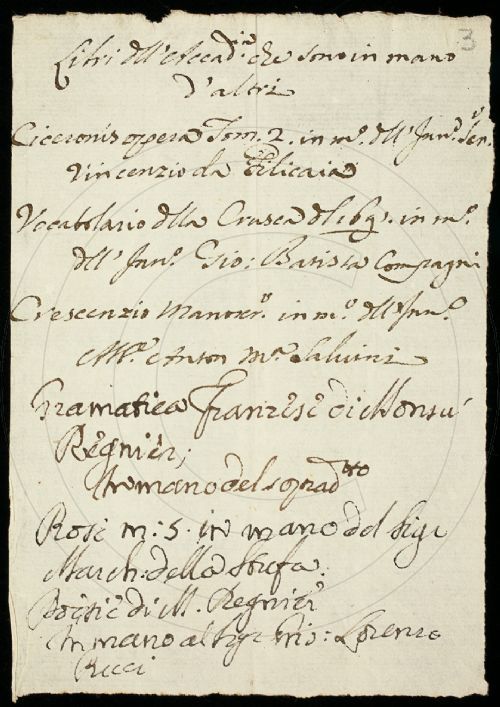 3
Libri dell'Accad.ia che sono in mano
d'altri
Ciceronis opera Tom. 2. in m.o dell' Inn.o Sen.
Vincenzio da Filicaia
Vocabolario della Crusca del 1691. in m.o
dell' Inn.o Gio: Batista Compagni
Crescenzio Manoscr.o in m.o dell'Inn.o
Ab.e Anton M.a Salvini
Gramatica Franzese di Monsù
Regnier;
In mano del soprad.tto
Rose n: 5. in mano del Sigr
March: della Stufa.
Poesie di M. Regnier
in mano al Sigr Gio: Lorenzo
Pucci